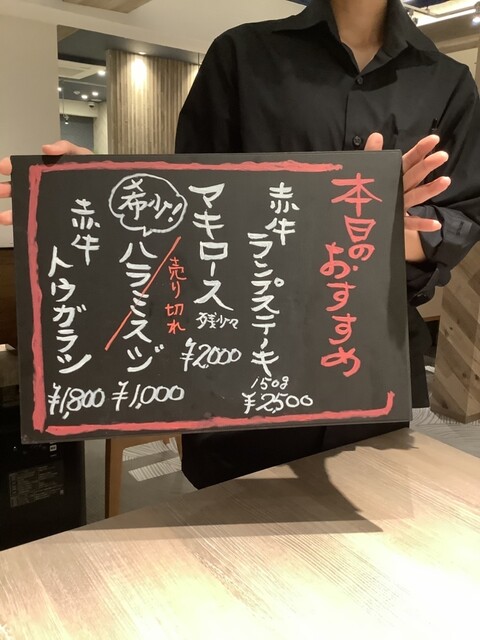 本日のおすすめ
赤牛
ランプステーキ
150g
¥2500
マキロース
残少々
¥2000
希少!
ハラミスジ
売り切れ
¥1,000
赤牛
トウガラシ
¥1,800